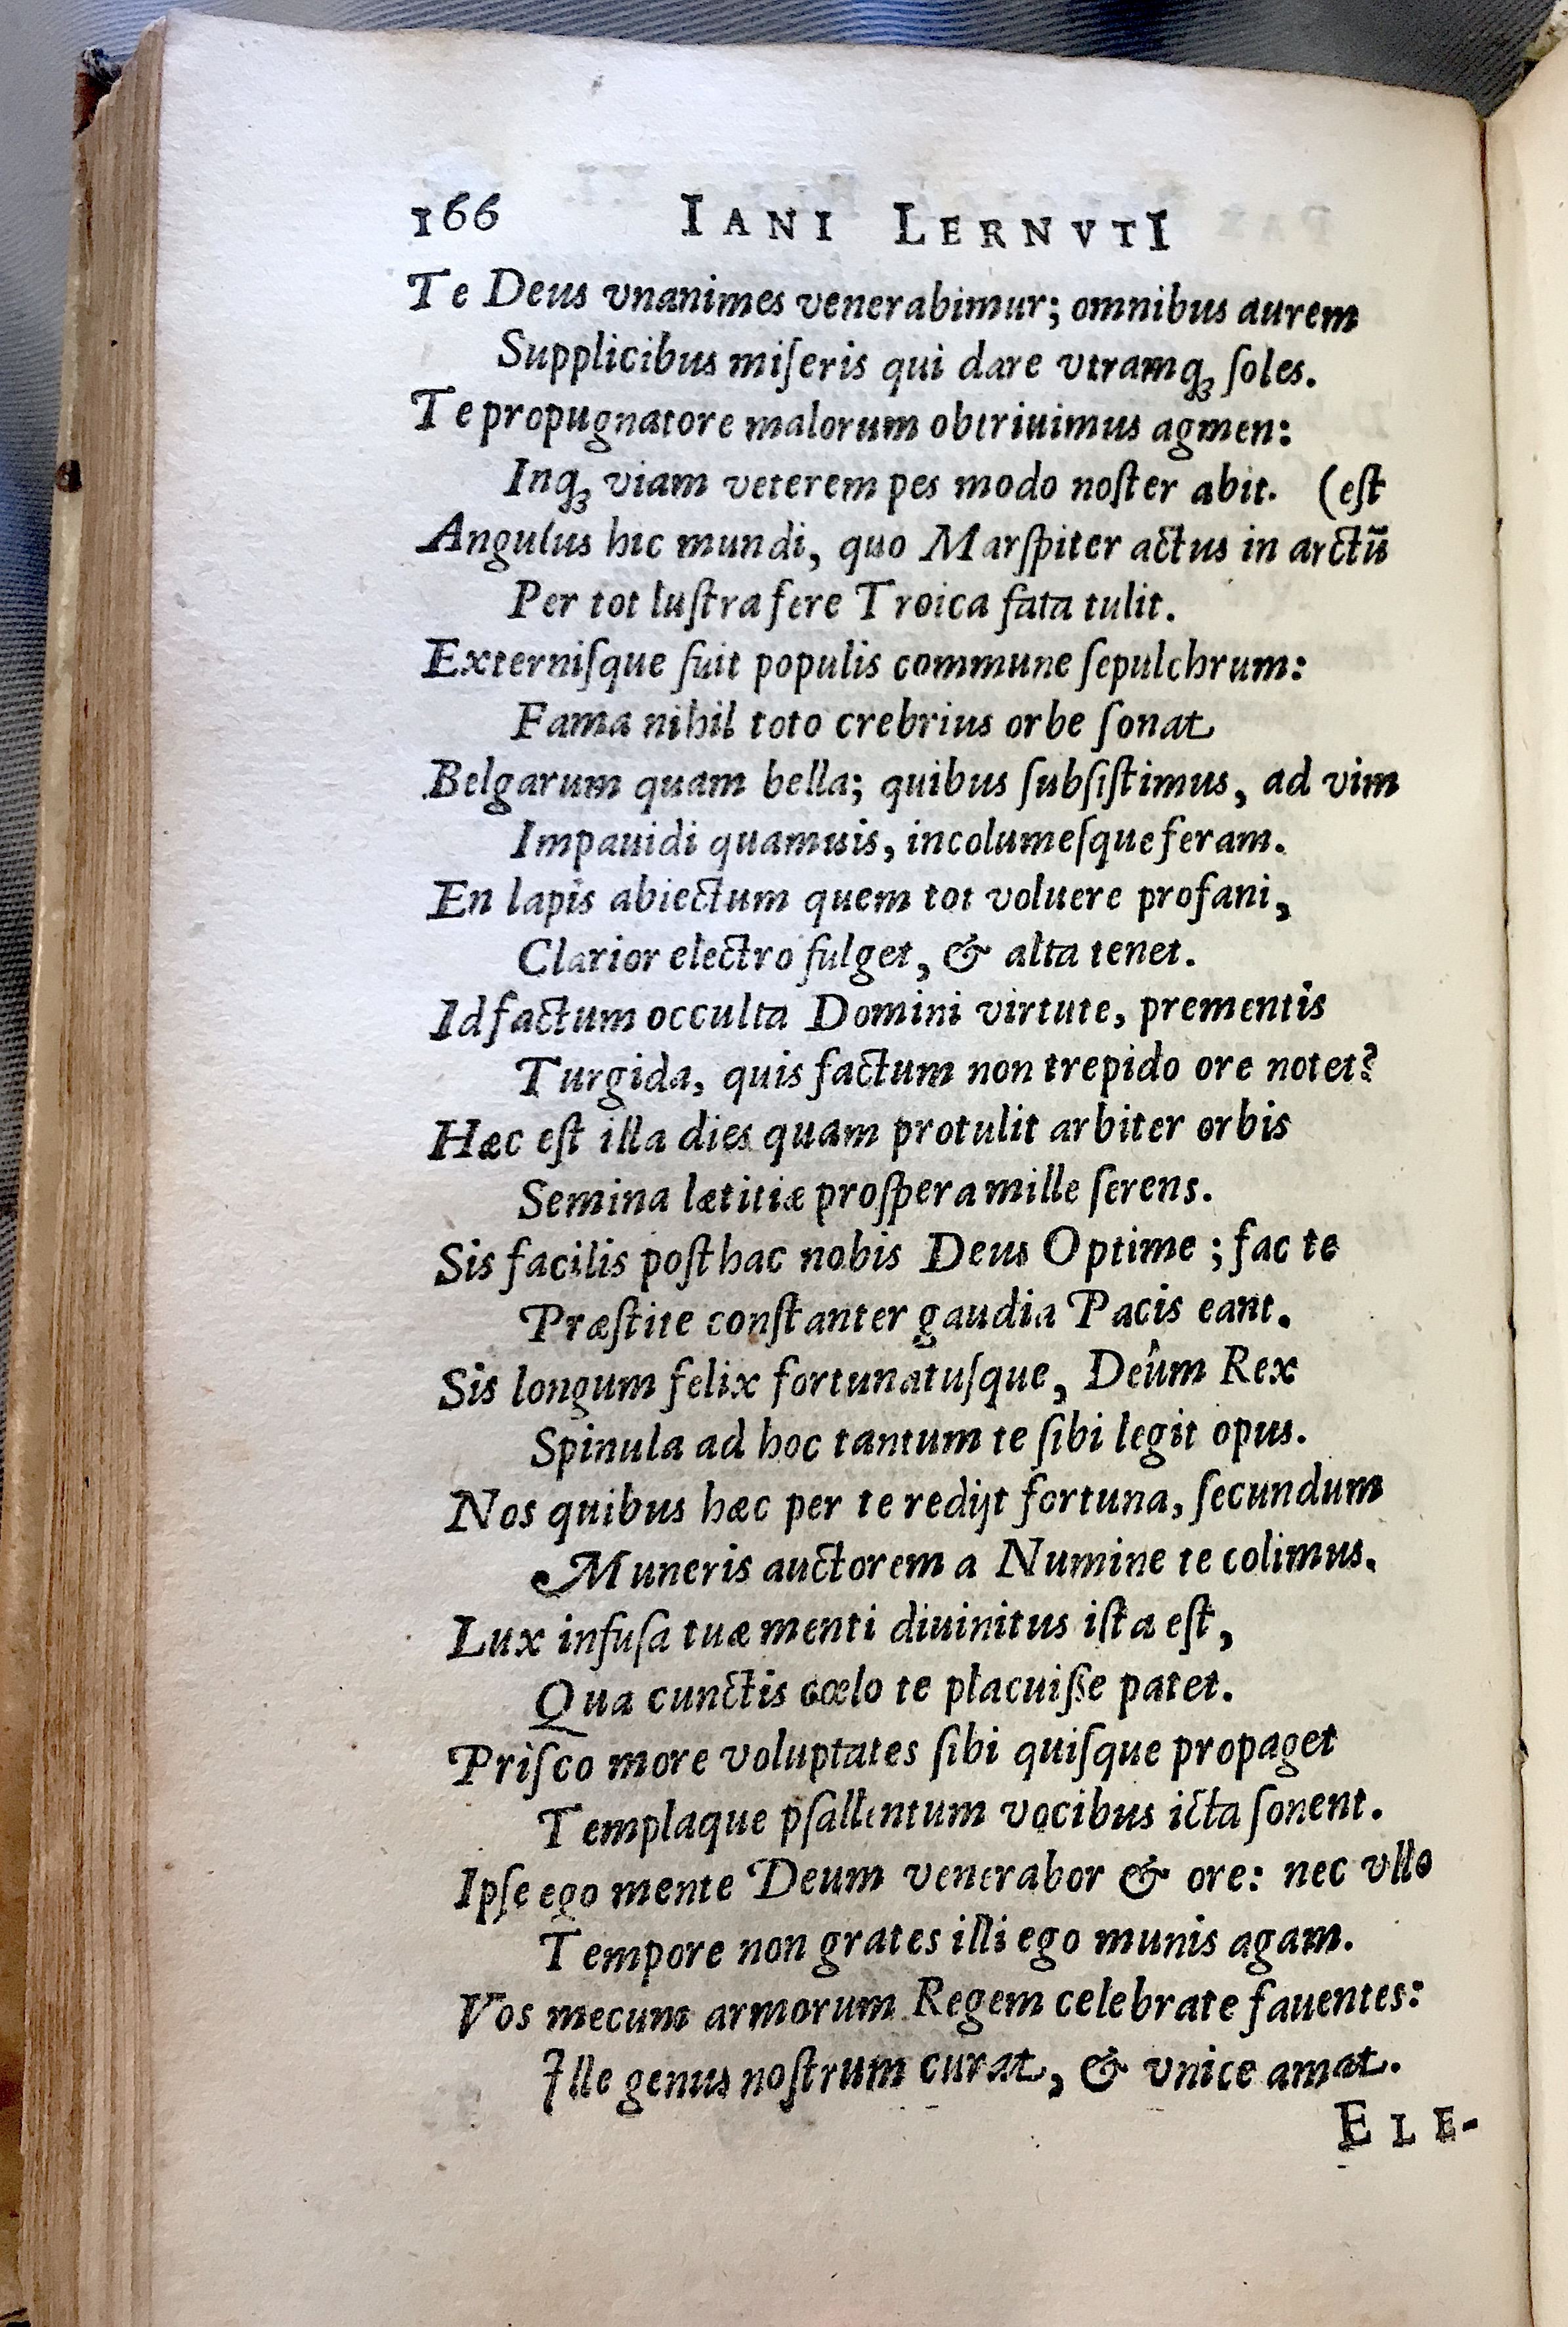 166 IANI LERNVTI
Te Deus vnanimes venerabimur; omnibus aurem
Supplicibus miſeris qui dare vtramqꝫ ſoles.
Te propugnatore malorum obtriuimus agmen:
Inqꝫ viam veterem pes modo noſter abit. (eſt
Angulus hic mundi, quo Marſpiter actus in arctū
Per tot luſtra fere Troica fata tulit.
Externiſque fuit populis commune ſepulchrum:
Fama nihil toto crebrius orbe ſonat
Belgarum quam bella; quibus ſubſiſtimus, ad vim
Impauidi quamuis, incolumeſque feram.
En lapis abiectum quem tot voluere profani,
Clarior electro fulget, & alta tenet.
Id factum occulta Domini virtute, prementis
Turgida, quis factum non trepido ore notet?
Hæc eſt illa dies quam protulit arbiter orbis
Semina lætitiæ proſpera mille ſerens.
Sis facilis poſthac nobis Deus Optime; fac te
Præſtite conſtanter gaudia Pacis eant.
Sis longum felix fortunatuſque, Deûm Rex
Spinula ad hoc tantum te ſibi legit opus.
Nos quibus hæc per te redijt fortuna, ſecundum
Muneris auctorem a Numine te colimus.
Lux infuſa tuæ menti diuinitus iſta eſt,
Qua cunctis cœlo te placuiße patet.
Priſco more voluptates ſibi quiſque propaget
Templaque pſallentum vocibus icta ſonent.
Ipſe ego mente Deum venerabor & ore: nec vllo
Tempore non grates illi ego munis agam.
Vos mecum armorum Regem celebrate fauentes:
Ille genus noſtrum curat, & vnice amat.
ELE-